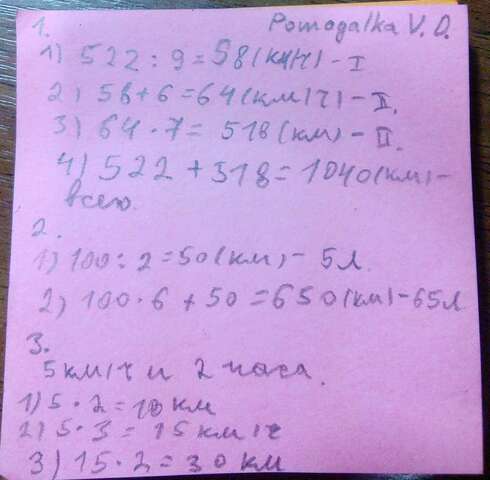 1. Pomagalka V. D.
1) 522 : 9 = 58 (км/ч) - I
2) 58 + 6 = 64 (км/ч) - II.
3) 64 · 7 = 518 (км) - II.
4) 522 + 518 = 1040 (км) -
всего.
2.
1) 100 : 2 = 50 (км) - 5л
2) 100 · 6 + 50 = 650 (км) - 65л
3.
5 км/ч и 2 часа.
1) 5 · 2 = 10 км
2) 5 · 3 = 15 км/ч
3) 15 · 2 = 30 км